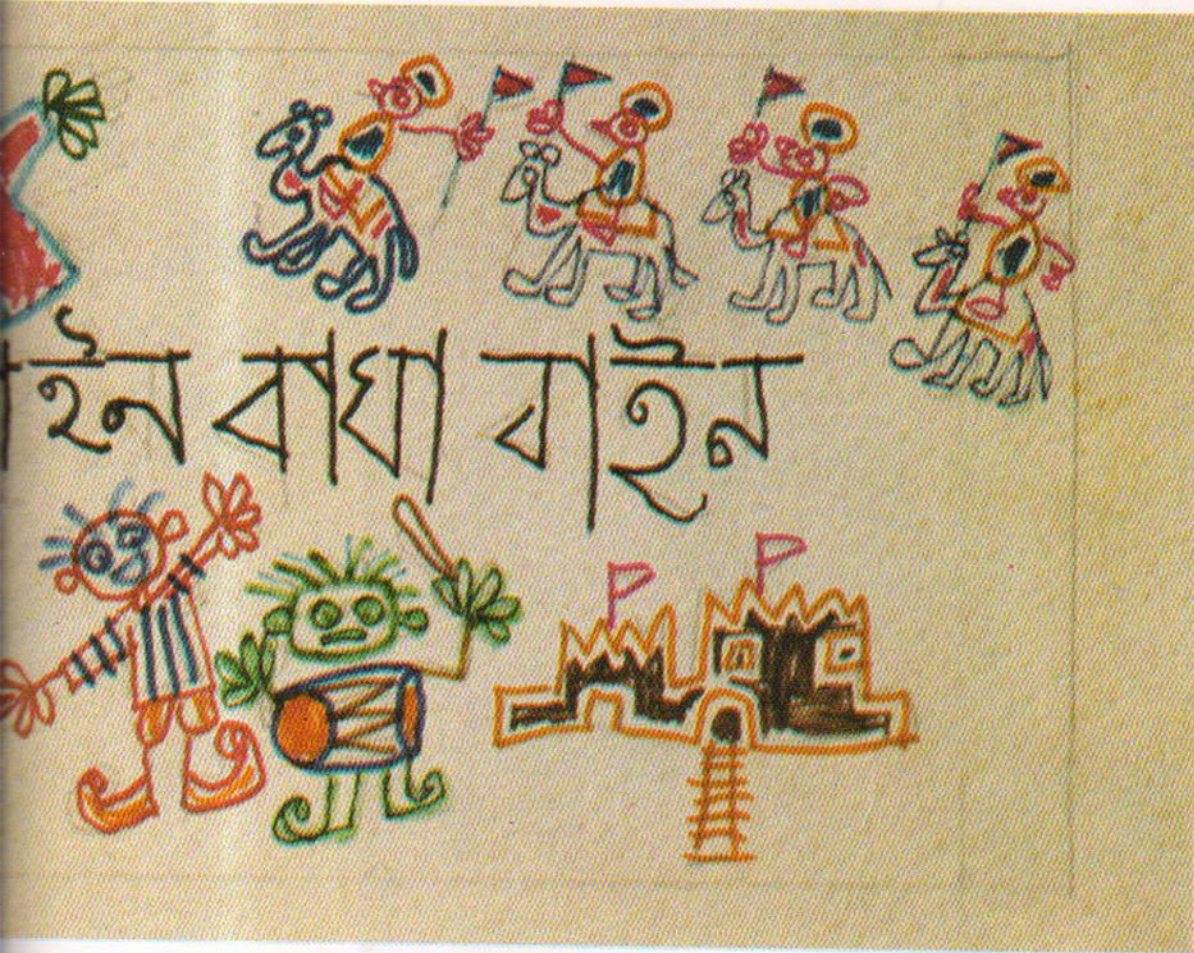 াইন বাঘা বাইন